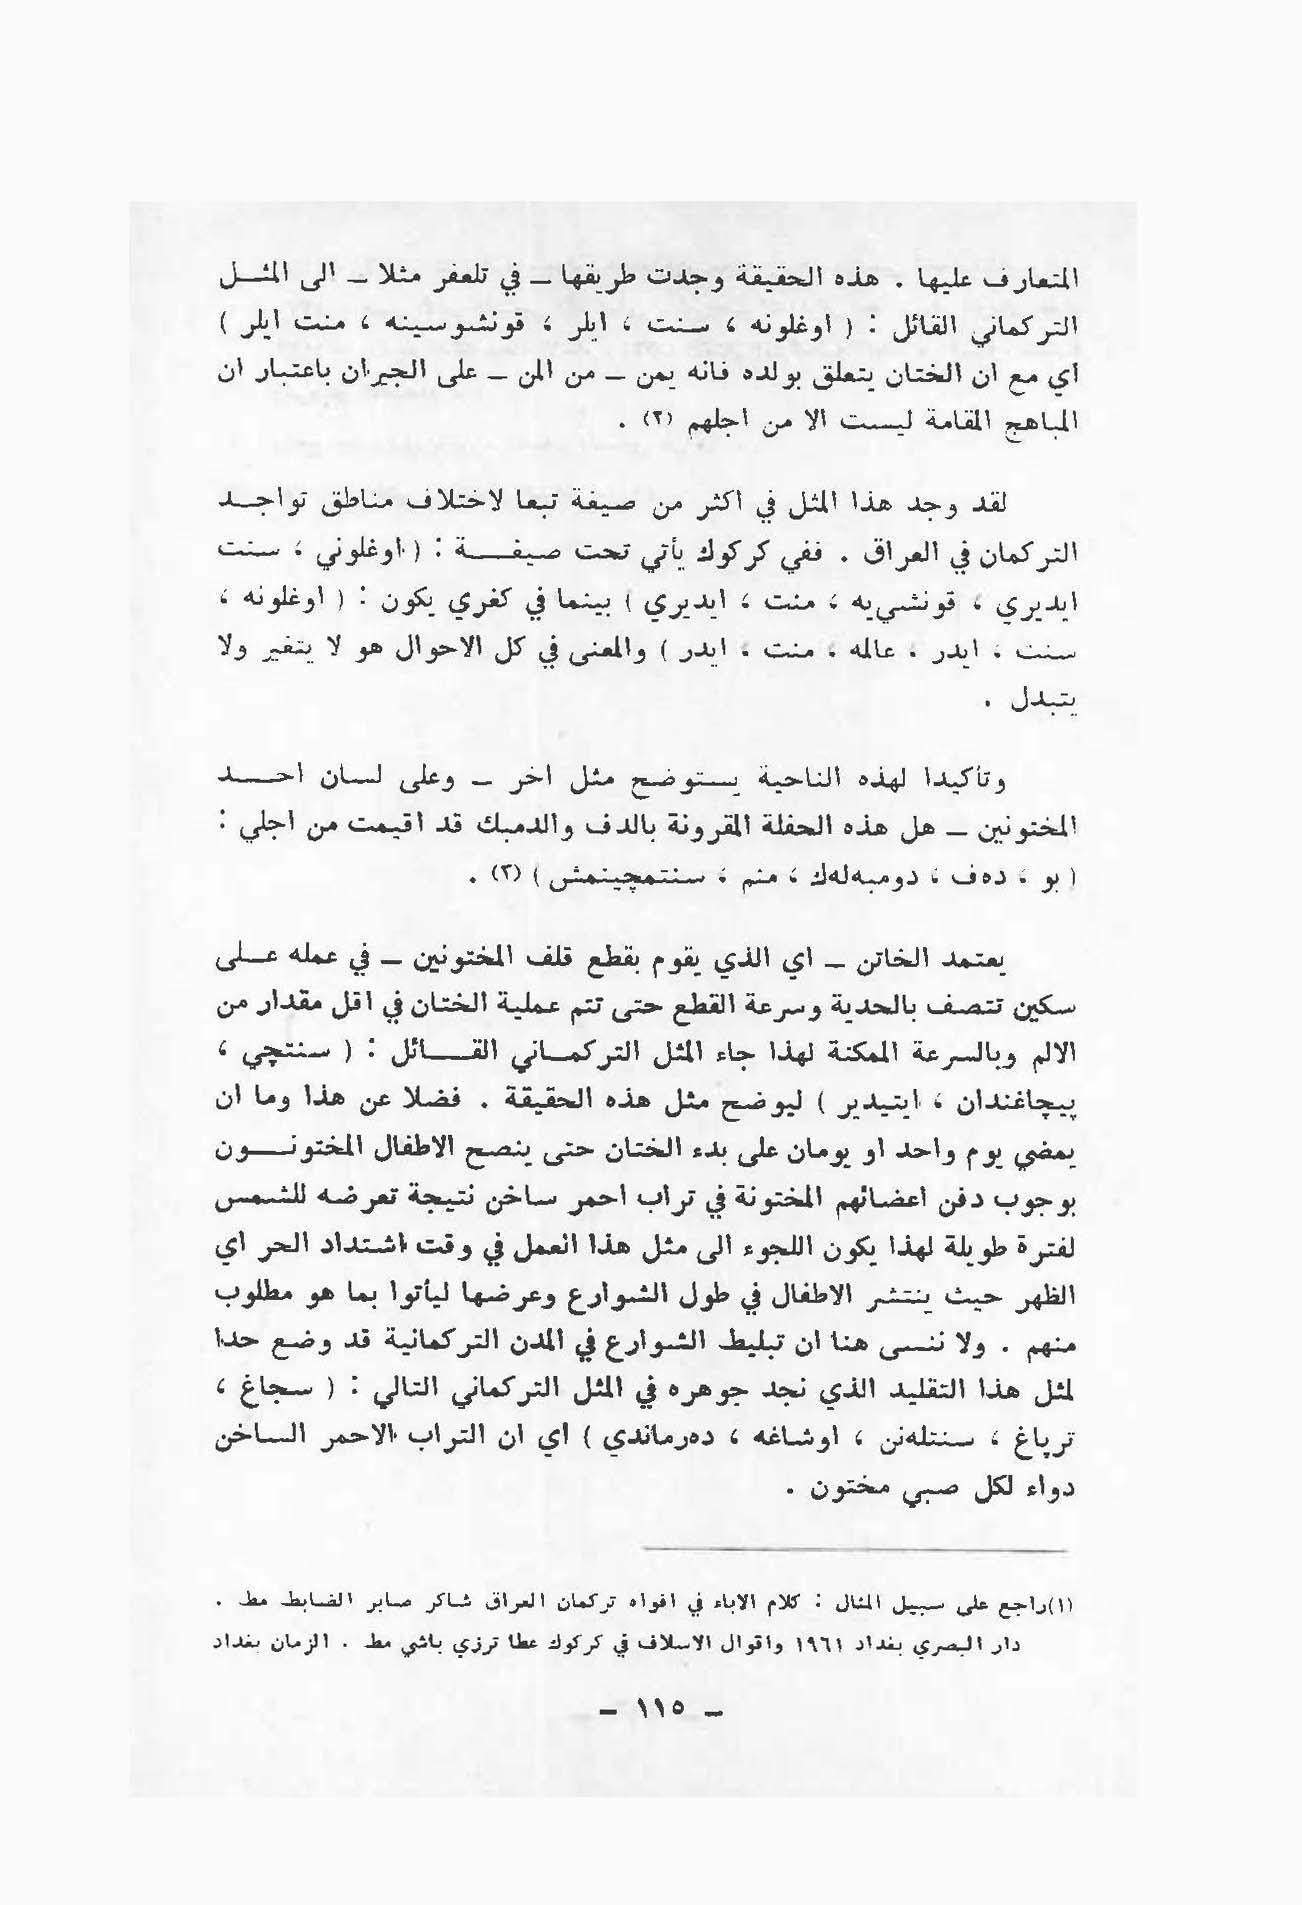 المتعارف عليها . هذه الحقيقة وجدت طريقها – في تلعفر مثلا – الى المثل
التركماني القائل : ( اوغلونه ، سنت ، ايلر ، قونشوسينه ، منت ايلر )
اي مع ان الختان يتعلق بولده فانه يمن – من المن – على الجيران باعتبار ان
المباهج المقامة ليست الا من اجلهم (٢) .
لقد وجد هذا المثل في اكثر من صيغة تبعا لاختلاف مناطق تواجد
التركمان في العراق . ففي كركوك يأتي تحت صيغة : ( اوغلوني ، سنت
ايديري ، قونشي‌يه ، منت ، ايديري ) بينما في كفري يكون : ( اوغلونه ،
سنت ، ايدر ، عالمه ، منت ، ايدر ) والمعنى في كل الاحوال هو لا يتغير ولا
يتبدل .
وتأكيدا لهذه الناحية يستوضح مثل اخر – وعلى لسان احد
المختونين – هل هذه الحفلة المقرونة بالدف والدمبك قد اقيمت من اجلي :
( بو ، ده‌ف ، دومبه‌له‌ك ، منم ، سنتمچينمش ) (٣) .
يعتمد الخاتن – اي الذي يقوم بقطع قلف المختونين – في عمله على
سكين تتصف بالحدية وسرعة القطع حتى تتم عملية الختان في اقل مقدار من
الالم وبالسرعة الممكنة لهذا جاء المثل التركماني القائل : ( سنتچي ،
پيچاغندان ، ايتيدير ) ليوضح مثل هذه الحقيقة . فضلا عن هذا وما ان
يمضي يوم واحد او يومان على بدء الختان حتى ينصح الاطفال المختونون
بوجوب دفن اعضائهم المختونة في تراب احمر ساخن نتيجة تعرضه للشمس
لفترة طويلة لهذا يكون اللجوء الى مثل هذا العمل في وقت اشتداد الحر اي
الظهر حيث ينتشر الاطفال في طول الشوارع وعرضها ليأتوا بما هو مطلوب
منهم . ولا ننسى هنا ان تبليط الشوارع في المدن التركمانية قد وضع حدا
لمثل هذا التقليد الذي نجد جوهره في المثل التركماني التالي : ( سجاغ ،
ترپاغ ، سنتله‌نن ، اوشاغه ، ده‌رماندي ) اي ان التراب الاحمر الساخن
دواء لكل صبي مختون .
(١)راجع على سبيل المثال : كلام الاباء في افواه تركمان العراق شاكر صابر الضابط مط .
دار البصري بغداد ١٩٦١ واقوال الاسلاف في كركوك عطا ترزي باشي مط . الزمان بغداد
– ١١٥ –